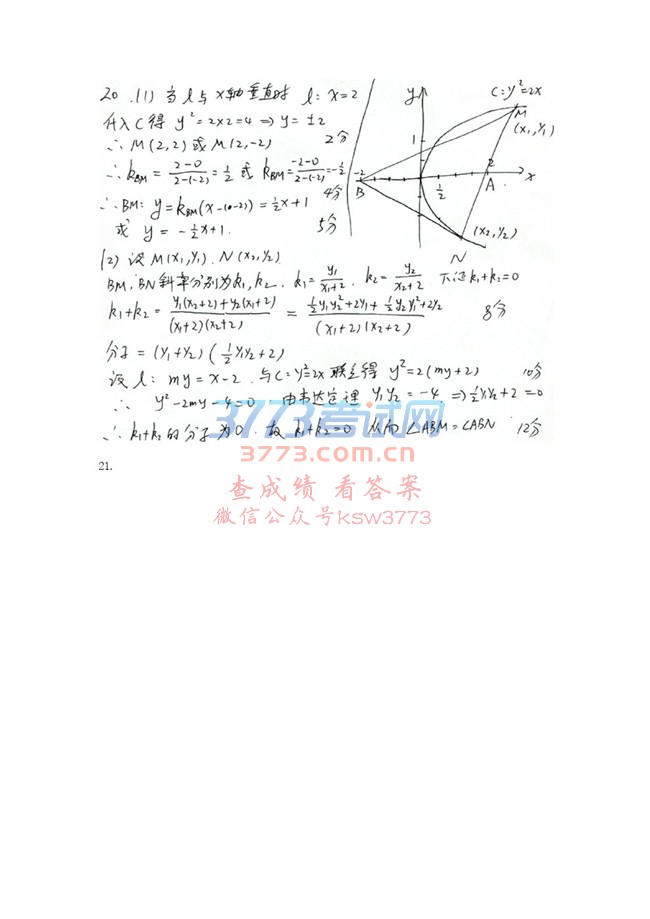 20.(1) 当l与x轴垂直时 l: x=2
代入C得 y²=2×2=4 ⇒ y=±2
∴ M(2,2)或M(2,-2) 2分
∴ k_BM = (2-0)/(2-(-2)) = 1/2 或 k_BM = (-2-0)/(2-(-2)) = -1/2 4分
∴ BM: y=k_BM(x-(-2))=½x+1
或 y=-½x+1. 5分
C: y²=2x
y
M
(x₁,y₁)
1
-2
B
1/2
2
A
x
(x₂,y₂)
N
(2) 设M(x₁,y₁), N(x₂,y₂)
BM, BN斜率分别为k₁,k₂. k₁=y₁/(x₁+2). k₂=y₂/(x₂+2) 下证k₁+k₂=0
k₁+k₂ = (y₁(x₂+2)+y₂(x₁+2))/((x₁+2)(x₂+2)) = (½y₁y₂²+2y₁+½y₂y₁²+2y₂)/((x₁+2)(x₂+2)) 8分
分子=(y₁+y₂)(½y₁y₂+2)
设l: my=x-2. 与C: y²=2x联立得 y²=2(my+2) 10分
∴ y²-2my-4=0 由韦达定理 y₁y₂=-4 ⇒ ½y₁y₂+2=0
∴ k₁+k₂的分子为0. 故 k₁+k₂=0 从而∠ABM=∠ABN 12分
3773考试网
3773.com.cn
21.
查成绩 看答案
微信公众号ksw3773